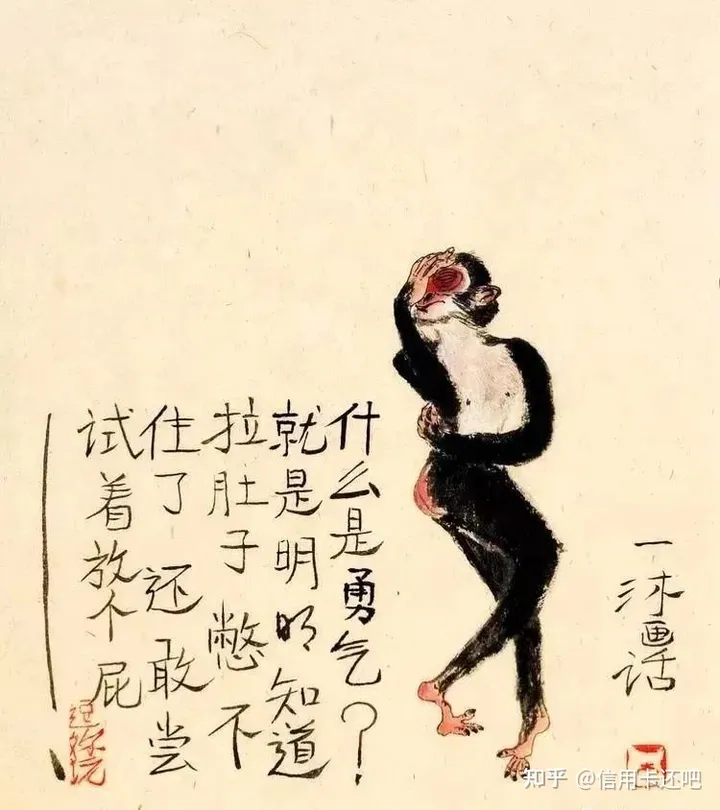 什么是勇气？
就是明明知道
拉肚子憋不
住了还敢尝
试着放个屁
一沐画话
逗你玩
知乎 @信用卡还吧